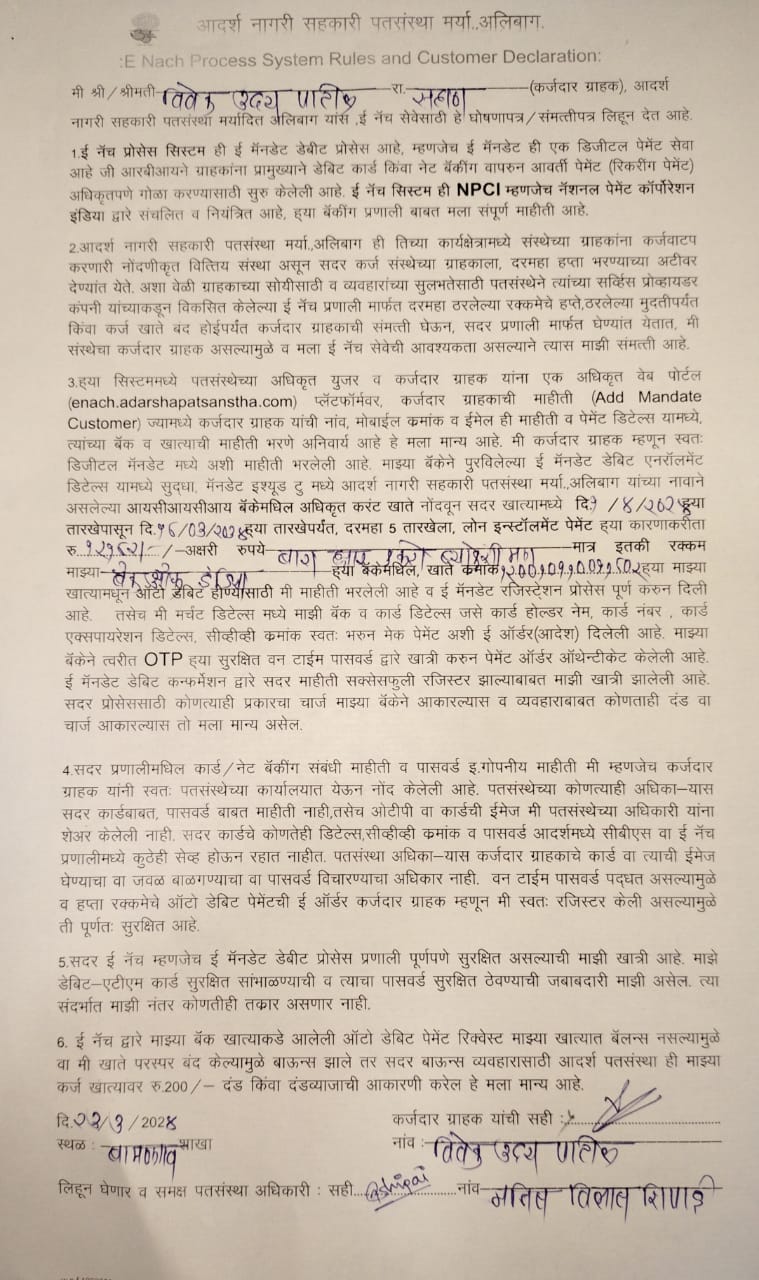 आदर्श नागरी सहकारी पतसंस्था मर्या.,अलिबाग.
:E Nach Process System Rules and Customer Declaration:
मी श्री/श्रीमती विवेक उदय पाटील रा. सहाण (कर्जदार ग्राहक), आदर्श
नागरी सहकारी पतसंस्था मर्यादित अलिबाग यांस ,ई नॅच सेवेसाठी हे घोषणापत्र/संमत्तीपत्र लिहून देत आहे.
1.ई नॅच प्रोसेस सिस्टम ही ई मॅनडेट डेबीट प्रोसेस आहे, म्हणजेच ई मॅनडेट ही एक डिजीटल पेमेंट सेवा
आहे जी आरबीआयने ग्राहकांना प्रामुख्याने डेबिट कार्ड किंवा नेट बँकींग वापरुन आवर्ती पेमेंट (रिकरींग पेमेंट)
अधिकृतपणे गोळा करण्यासाठी सुरु केलेली आहे. ई नॅच सिस्टम ही NPCI म्हणजेच नॅशनल पेमेंट कॉर्पोरेशन
इंडिया द्वारे संचलित व नियंत्रित आहे, ह्या बॅकींग प्रणाली बाबत मला संपूर्ण माहीती आहे.
2.आदर्श नागरी सहकारी पतसंस्था मर्या.,अलिबाग ही तिच्या कार्यक्षेत्रामध्ये संस्थेच्या ग्राहकांना कर्जवाटप
करणारी नोंदणीकृत वित्तिय संस्था असून सदर कर्ज संस्थेच्या ग्राहकाला, दरमहा हप्ता भरण्याच्या अटीवर
देण्यांत येते. अशा वेळी ग्राहकाच्या सोयीसाठी व व्यवहारांच्या सुलभतेसाठी पतसंस्थेने त्यांच्या सर्व्हिस प्रोव्हायडर
कंपनी यांच्याकडून विकसित केलेल्या ई नॅच प्रणाली मार्फत दरमहा ठरलेल्या रक्कमेचे हप्ते,ठरलेल्या मुदतीपर्यंत
किंवा कर्ज खाते बद होईपर्यंत कर्जदार ग्राहकाची संमत्ती घेऊन, सदर प्रणाली मार्फत घेण्यांत येतात, मी
संस्थेचा कर्जदार ग्राहक असल्यामुळे व मला ई नॅच सेवेची आवश्यकता असल्याने त्यास माझी संमत्ती आहे.
3.ह्या सिस्टममध्ये पतसंस्थेच्या अधिकृत युजर व कर्जदार ग्राहक यांना एक अधिकृत वेब पोर्टल
(enach.adarshapatsanstha.com) प्लॅटफॉर्मवर, कर्जदार ग्राहकाची माहीती (Add Mandate
Customer) ज्यामध्ये कर्जदार ग्राहक यांची नांव, मोबाईल क्रमांक व ईमेल ही माहीती व पेमेंट डिटेल्स यामध्ये,
त्यांच्या बॅक व खात्याची माहीती भरणे अनिवार्य आहे हे मला मान्य आहे. मी कर्जदार ग्राहक म्हणून स्वतः
डिजीटल मॅनडेट मध्ये अशी माहीती भरलेली आहे. माझ्या बॅकेने पुरविलेल्या ई मॅनडेट डेबिट एनरॉलमेंट
डिटेल्स यामध्ये सुद्धा, मॅनडेट इश्यूड टु मध्ये आदर्श नागरी सहकारी पतसंस्था मर्या.,अलिबाग यांच्या नावाने
असलेल्या आयसीआयसीआय बॅकेमधिल अधिकृत करंट खाते नोंदवून सदर खात्यामध्ये दि.१ /४/२०२ ह्या
तारखेपासून दि.१६/03/२०२४ ह्या तारखेपर्यंत, दरमहा 5 तारखेला, लोन इन्स्टॉलमेंट पेमेंट ह्या कारणाकरीता
रु. /-अक्षरी रुपये मात्र इतकी रक्कम
माझ्या बँक ऑफ इंडिया ह्या बॅकेमधिल, खाते क्रमांक ह्या माझ्या
खात्यामधून ऑटो डेबिट होण्यासाठी मी माहीती भरलेली आहे व ई मॅनडेट रजिस्ट्रेशन प्रोसेस पूर्ण करुन दिली
आहे. तसेच मी मर्चट डिटेल्स मध्ये माझी बॅक व कार्ड डिटेल्स जसे कार्ड होल्डर नेम, कार्ड नंबर , कार्ड
एक्सपायरेशन डिटेल्स, सीव्हीव्ही क्रमांक स्वतः भरुन मेक पेमेंट अशी ई ऑर्डर(आदेश) दिलेली आहे. माझ्या
बॅकेने त्वरीत OTP ह्या सुरक्षित वन टाईम पासवर्ड द्वारे खात्री करुन पेमेंट ऑर्डर ऑथेन्टीकेट केलेली आहे.
ई मॅनडेट डेबिट कन्फर्मेशन द्वारे सदर माहीती सक्सेसफुली रजिस्टर झाल्याबाबत माझी खात्री झालेली आहे.
सदर प्रोसेससाठी कोणत्याही प्रकारचा चार्ज माझ्या बॅकेने आकारल्यास व व्यवहाराबाबत कोणताही दंड वा
चार्ज आकारल्यास तो मला मान्य असेल.
4.सदर प्रणालीमधिल कार्ड/नेट बॅकींग संबंधी माहीती व पासवर्ड इ.गोपनीय माहीती मी म्हणजेच कर्जदार
ग्राहक यांनी स्वतः पतसंस्थेच्या कार्यालयात येऊन नोंद केलेली आहे. पतसंस्थेच्या कोणत्याही अधिका–यास
सदर कार्डबाबत, पासवर्ड बाबत माहीती नाही,तसेच ओटीपी वा कार्डची ईमेज मी पतसंस्थेच्या अधिकारी यांना
शेअर केलेली नाही. सदर कार्डचे कोणतेही डिटेल्स,सीव्हीव्ही क्रमांक व पासवर्ड आदर्शमध्ये सीबीएस वा ई नॅच
प्रणालीमध्ये कुठेही सेव्ह होऊन रहात नाहीत. पतसंस्था अधिका–यास कर्जदार ग्राहकाचे कार्ड वा त्याची ईमेज
घेण्याचा वा जवळ बाळगण्याचा वा पासवर्ड विचारण्याचा अधिकार नाही. वन टाईम पासवर्ड पद्धत असल्यामुळे
व हप्ता रक्कमेचे ऑटो डेबिट पेमेंटची ई ऑर्डर कर्जदार ग्राहक म्हणून मी स्वतः रजिस्टर केली असल्यामुळे
ती पूर्णतः सुरक्षित आहे.
5.सदर ई नॅच म्हणजेच ई मॅनडेट डेबीट प्रोसेस प्रणाली पूर्णपणे सुरक्षित असल्याची माझी खात्री आहे. माझे
डेबिट–एटीएम कार्ड सुरक्षित सांभाळण्याची व त्याचा पासवर्ड सुरक्षित ठेवण्याची जबाबदारी माझी असेल. त्या
संदर्भात माझी नंतर कोणतीही तक्रार असणार नाही.
6. ई नॅच द्वारे माझ्या बॅक खात्याकडे आलेली ऑटो डेबिट पेमेंट रिक्वेस्ट माझ्या खात्यात बॅलन्स नसल्यामुळे
वा मी खाते परस्पर बंद केल्यामुळे बाऊन्स झाले तर सदर बाऊन्स व्यवहारासाठी आदर्श पतसंस्था ही माझ्या
कर्ज खात्यावर रु.200/– दंड किंवा दंडव्याजाची आकारणी करेल हे मला मान्य आहे.
दि.२२/3/202४ कर्जदार ग्राहक यांची सही :
स्थळ : बामणगांव शाखा नांव : विवेक उदय पाटील
लिहून घेणार व समक्ष पतसंस्था अधिकारी : सही नांव मनिष विलास